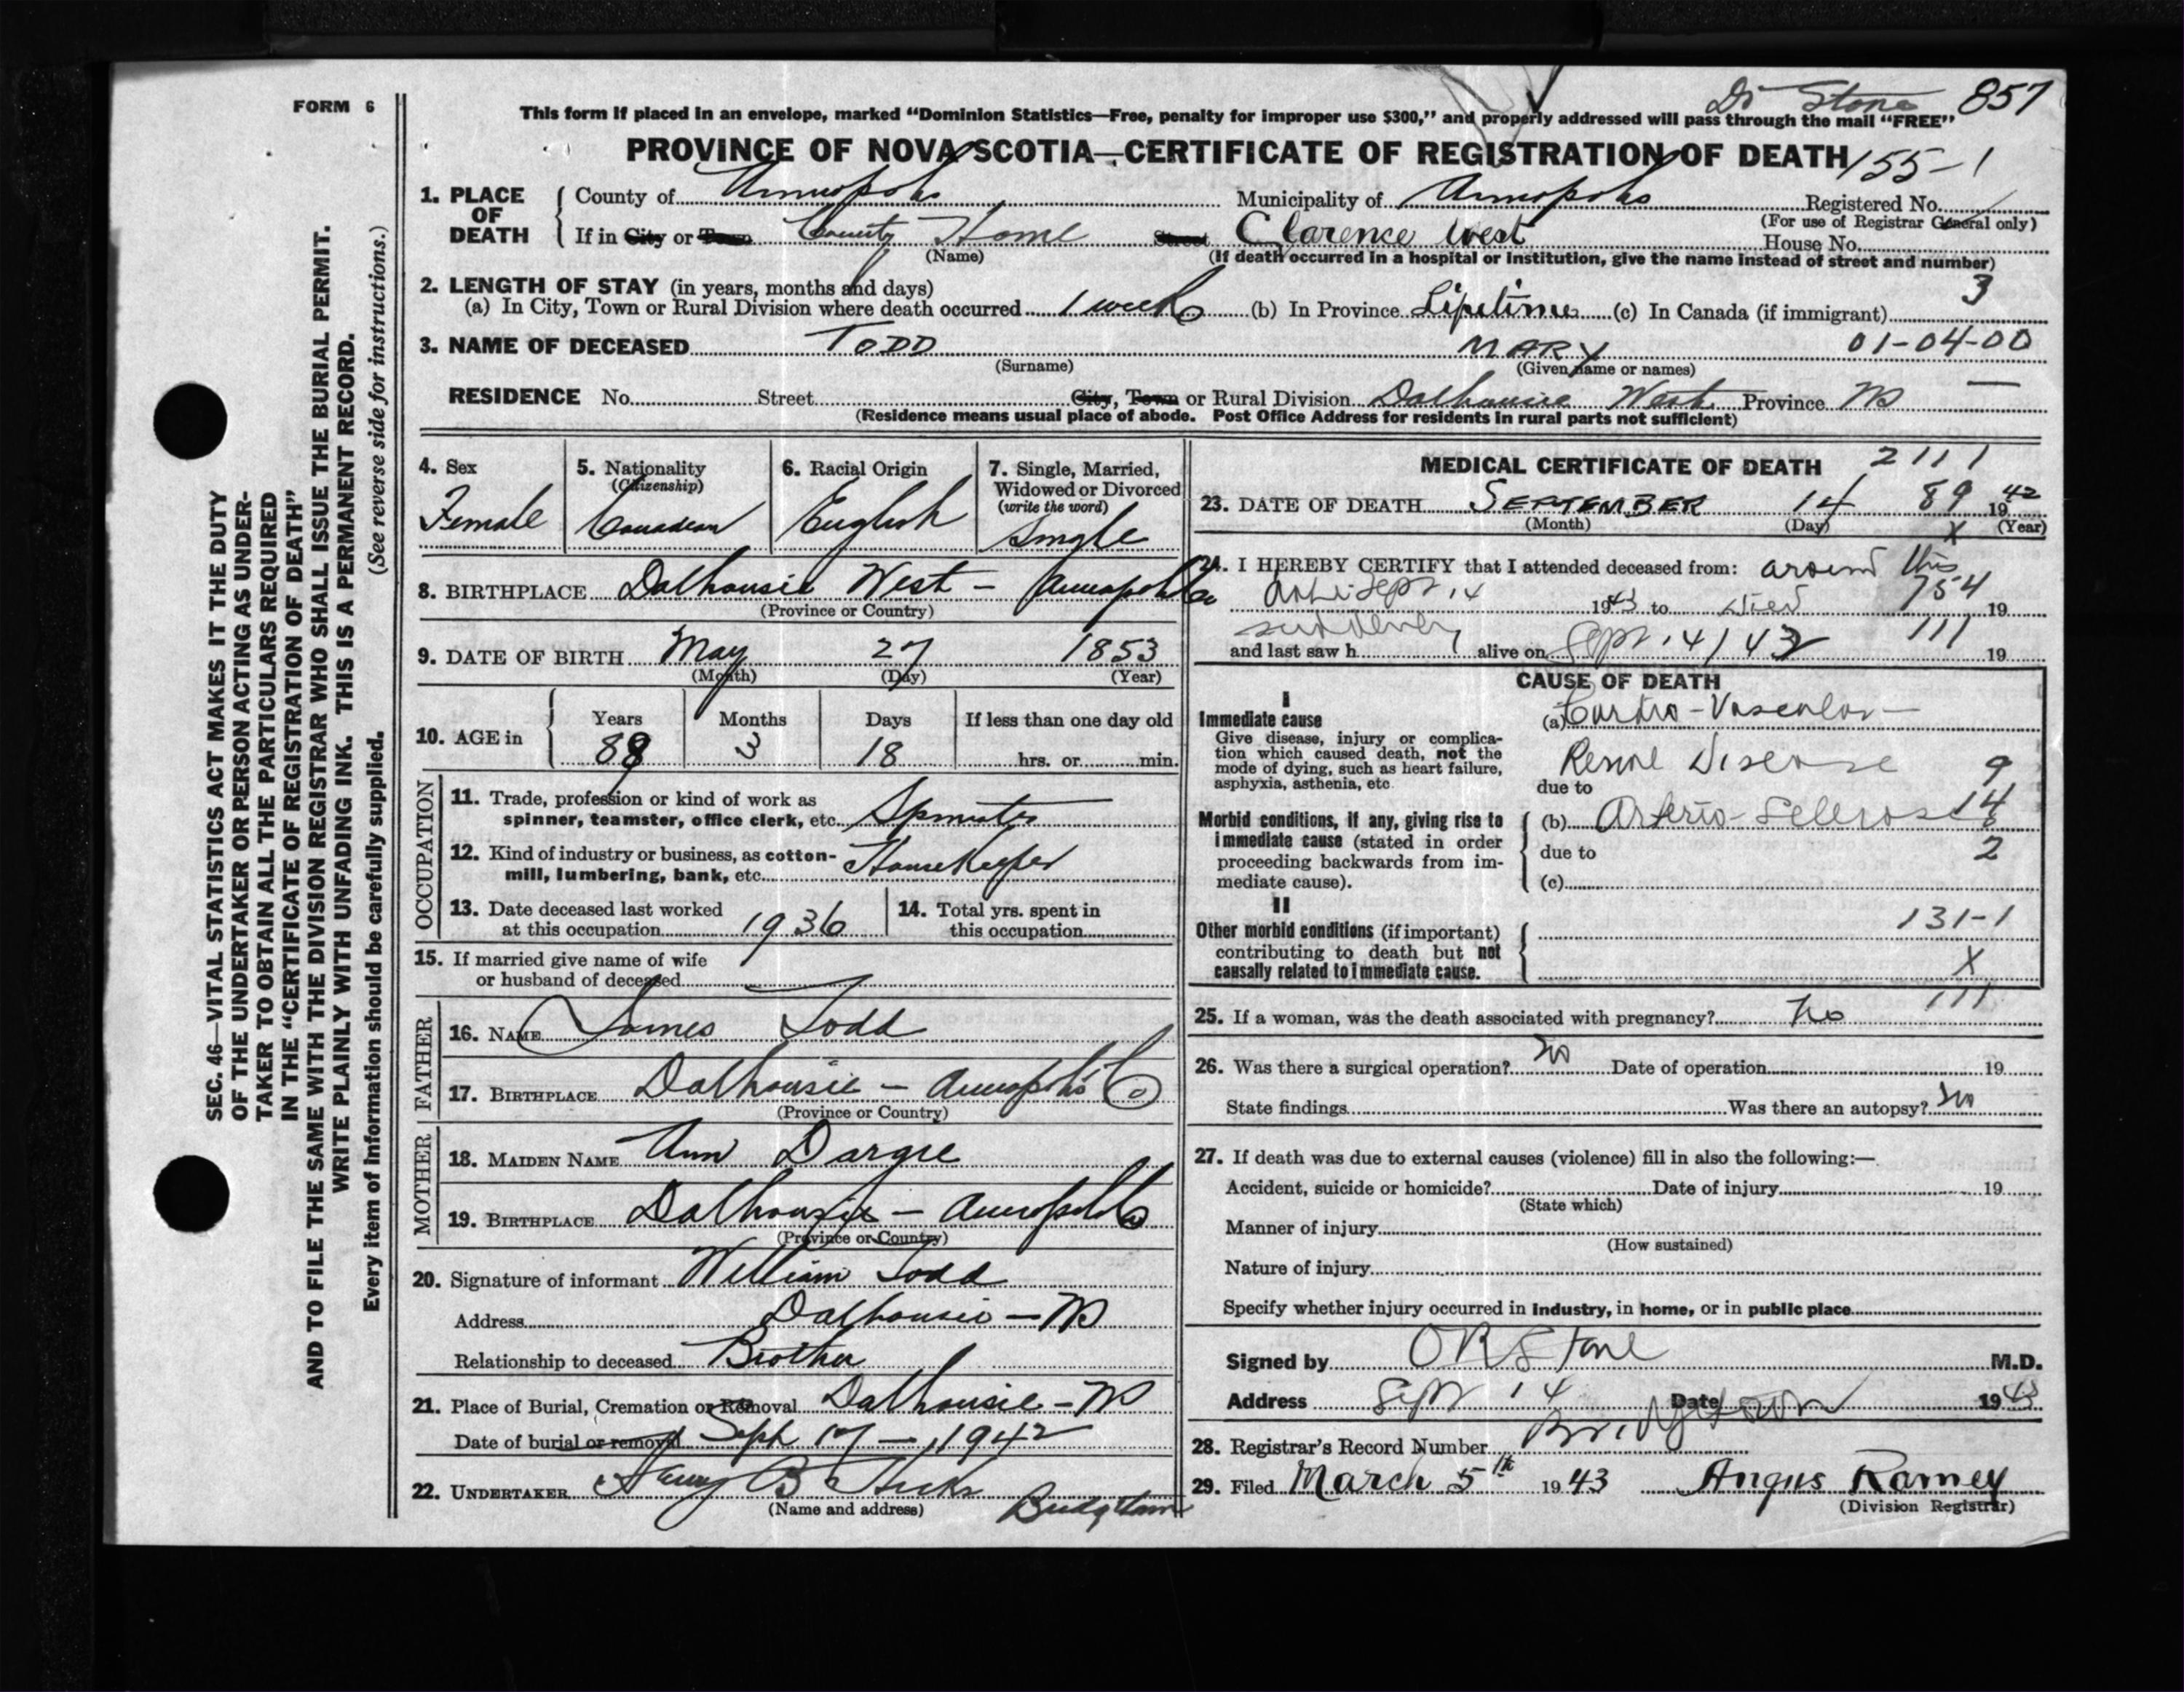 FORM 6
Dr Stone 857
This form if placed in an envelope, marked "Dominion Statistics—Free, penalty for improper use $300," and properly addressed will pass through the mail "FREE"
PROVINCE OF NOVA SCOTIA—CERTIFICATE OF REGISTRATION OF DEATH 155-1
1. PLACE OF DEATH
County of Annapolis Municipality of Annapolis Registered No.
(For use of Registrar General only)
If in City or Town County Home Street Clarence West House No.
(Name) (If death occurred in a hospital or institution, give the name instead of street and number)
2. LENGTH OF STAY (in years, months and days) 3
(a) In City, Town or Rural Division where death occurred 1 week (b) In Province Lifetime (c) In Canada (if immigrant)
3. NAME OF DECEASED TODD MARY 01-04-00
(Surname) (Given name or names)
RESIDENCE No. Street City, Town or Rural Division Dalhousie West Province NS —
(Residence means usual place of abode. Post Office Address for residents in rural parts not sufficient)
4. Sex
Female
5. Nationality
(Citizenship)
Canadian
6. Racial Origin
English
7. Single, Married,
Widowed or Divorced
(write the word)
Single
8. BIRTHPLACE Dalhousie West - Annapolis Co
(Province or Country)
9. DATE OF BIRTH May 27 1853
(Month) (Day) (Year)
10. AGE in
Years Months Days If less than one day old
89 3 18 hrs. or min.
OCCUPATION
11. Trade, profession or kind of work as
spinner, teamster, office clerk, etc. Spinster
12. Kind of industry or business, as cotton-
mill, lumbering, bank, etc. Housekeeper
13. Date deceased last worked
at this occupation 1936
14. Total yrs. spent in
this occupation
15. If married give name of wife
or husband of deceased —
FATHER
16. NAME James Todd
17. BIRTHPLACE Dalhousie - Annapolis Co
(Province or Country)
MOTHER
18. MAIDEN NAME Ann Dargie
19. BIRTHPLACE Dalhousie - Annapolis Co
(Province or Country)
20. Signature of informant William Todd
Address Dalhousie - NS
Relationship to deceased Brother
21. Place of Burial, Cremation or Removal Dalhousie - NS
Date of burial or removal Sept 17 - 1942
22. UNDERTAKER Harry B Hicks
(Name and address) Bridgetown
MEDICAL CERTIFICATE OF DEATH 2111
23. DATE OF DEATH SEPTEMBER 14 89 1942
(Month) (Day) X (Year)
24. I HEREBY CERTIFY that I attended deceased from: around this
date Sept 14 1943 to Died 754 19
suddenly
and last saw h alive on Sept 14/43 111 19
CAUSE OF DEATH
I
Immediate cause
Give disease, injury or complica-
tion which caused death, not the
mode of dying, such as heart failure,
asphyxia, asthenia, etc.
(a) Cardio-Vascular-
Renal Disease 9
due to
Morbid conditions, if any, giving rise to
immediate cause (stated in order
proceeding backwards from im-
mediate cause).
(b) Arterio-Sclerosis 14
due to 2
(c)
II
Other morbid conditions (if important)
contributing to death but not
causally related to immediate cause.
131-1
X
111
25. If a woman, was the death associated with pregnancy? No
26. Was there a surgical operation? no Date of operation 19
State findings Was there an autopsy? no
27. If death was due to external causes (violence) fill in also the following:—
Accident, suicide or homicide? Date of injury 19
(State which)
Manner of injury
(How sustained)
Nature of injury
Specify whether injury occurred in industry, in home, or in public place
Signed by O R Stone M.D.
Address Sept 14 Date 1943
Bridgetown
28. Registrar's Record Number
29. Filed March 5th 1943 Angus Ramey
(Division Registrar)
SEC. 46—VITAL STATISTICS ACT MAKES IT THE DUTY
OF THE UNDERTAKER OR PERSON ACTING AS UNDER-
TAKER TO OBTAIN ALL THE PARTICULARS REQUIRED
IN THE "CERTIFICATE OF REGISTRATION OF DEATH"
AND TO FILE THE SAME WITH THE DIVISION REGISTRAR WHO SHALL ISSUE THE BURIAL PERMIT.
WRITE PLAINLY WITH UNFADING INK. THIS IS A PERMANENT RECORD.
Every item of information should be carefully supplied. (See reverse side for instructions.)